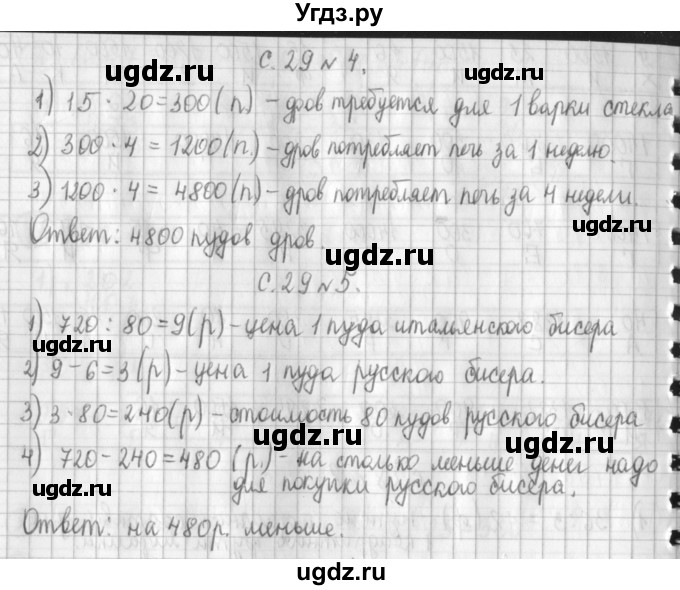 Угдз.ру
с. 29 № 4.
ugdz.ru ugdz.ru
1) 15 · 20 = 300 (п) – дров требуется для 1 варки стекла
2) 300 · 4 = 1200 (п.) – дров потребляет печь за 1 неделю.
3) 1200 · 4 = 4800 (п) – дров потребляет печь за 4 недели.
ugdz.ru
Ответ: 4800 пудов дров.
ugdz.ru
с. 29 № 5.
1) 720 : 80 = 9 (р) – цена 1 пуда итальянского бисера
ugdz.ru
2) 9 – 6 = 3 (р) – цена 1 пуда русского бисера.
3) 3 · 80 = 240 (р) – стоимость 80 пудов русского бисера
ugdz.ru ugdz.ru
4) 720 – 240 = 480 (р.) – на столько меньше денег надо
для покупки русского бисера.
ugdz.ru
Ответ: на 480 р. меньше.
ugdz.ru